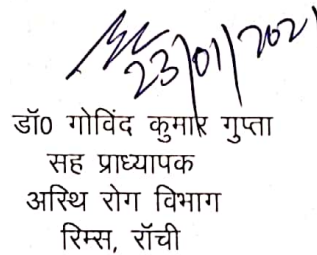 23/01/2021
डॉ0 गोविंद कुमार गुप्ता
सह प्राध्यापक
अस्थि रोग विभाग
रिम्स, रॉची